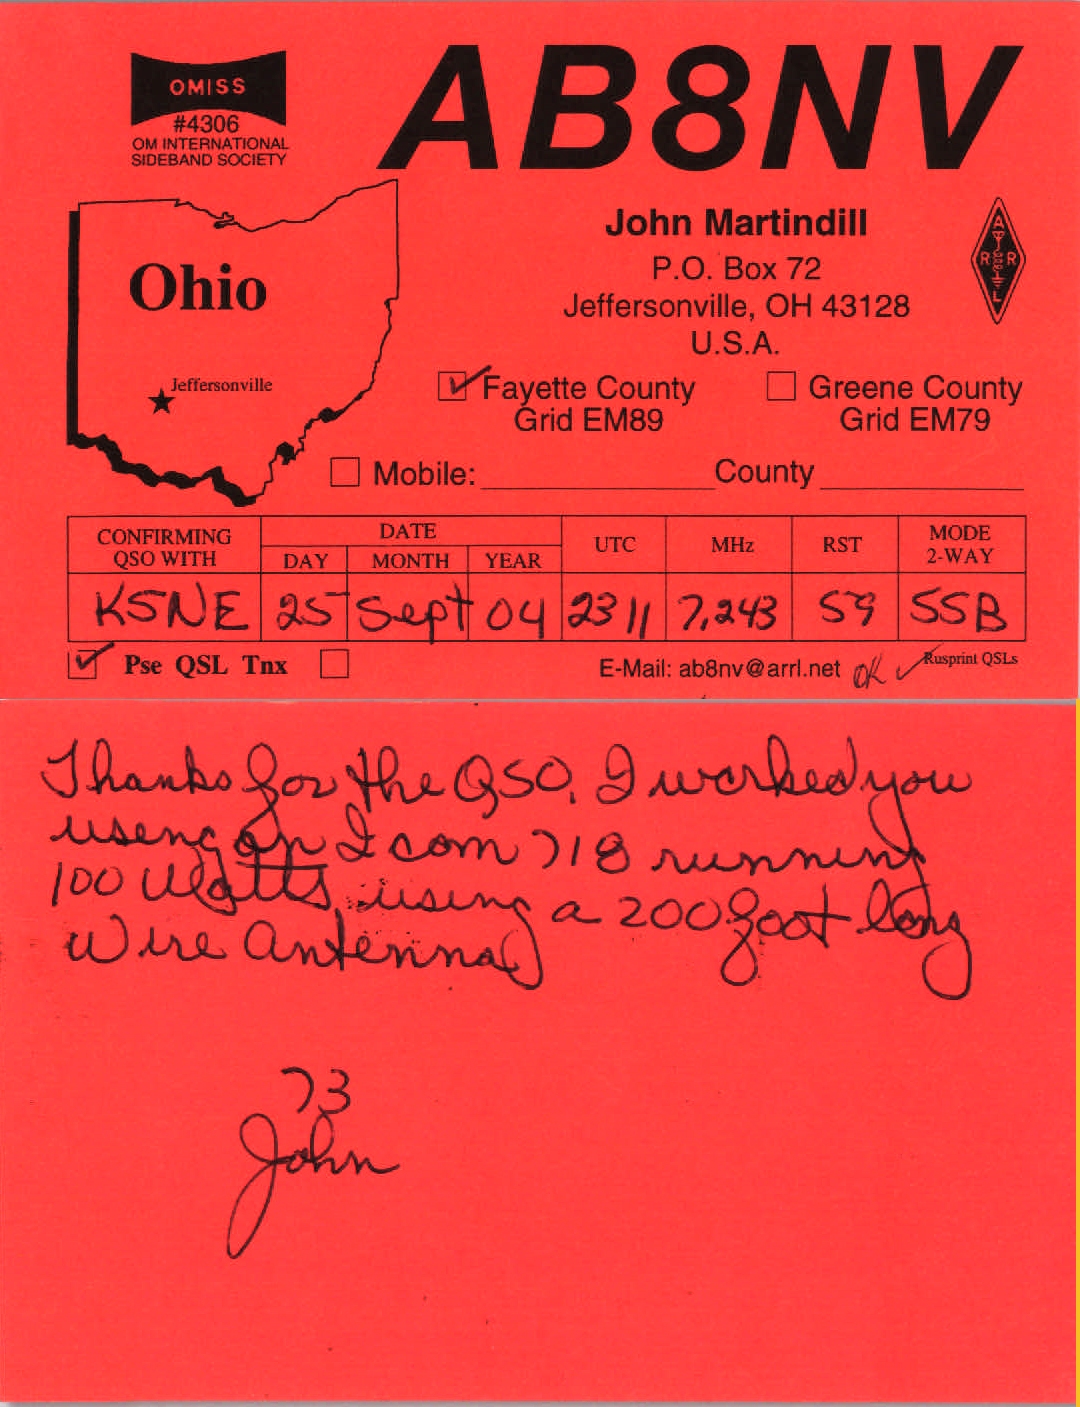 OMISS
#4306
OM INTERNATIONAL
SIDEBAND SOCIETY
AB8NV
John Martindill
P.O. Box 72
Jeffersonville, OH 43128
U.S.A.
A
R R
L
Ohio
Jeffersonville
Fayette County
Grid EM89
Greene County
Grid EM79
Mobile: County
CONFIRMING QSO WITH
DATE
DAY MONTH YEAR
UTC
MHz
RST
MODE 2-WAY
K5NE 25 Sept 04 2311 7,243 59 SSB
Pse QSL Tnx
E-Mail: ab8nv@arrl.net
OK
Rusprint QSLs
Thanks for the QSO, I worked you
useng an Icom 718 running
100 Watts, using a 200 foot long
Wire Antenna
73
John